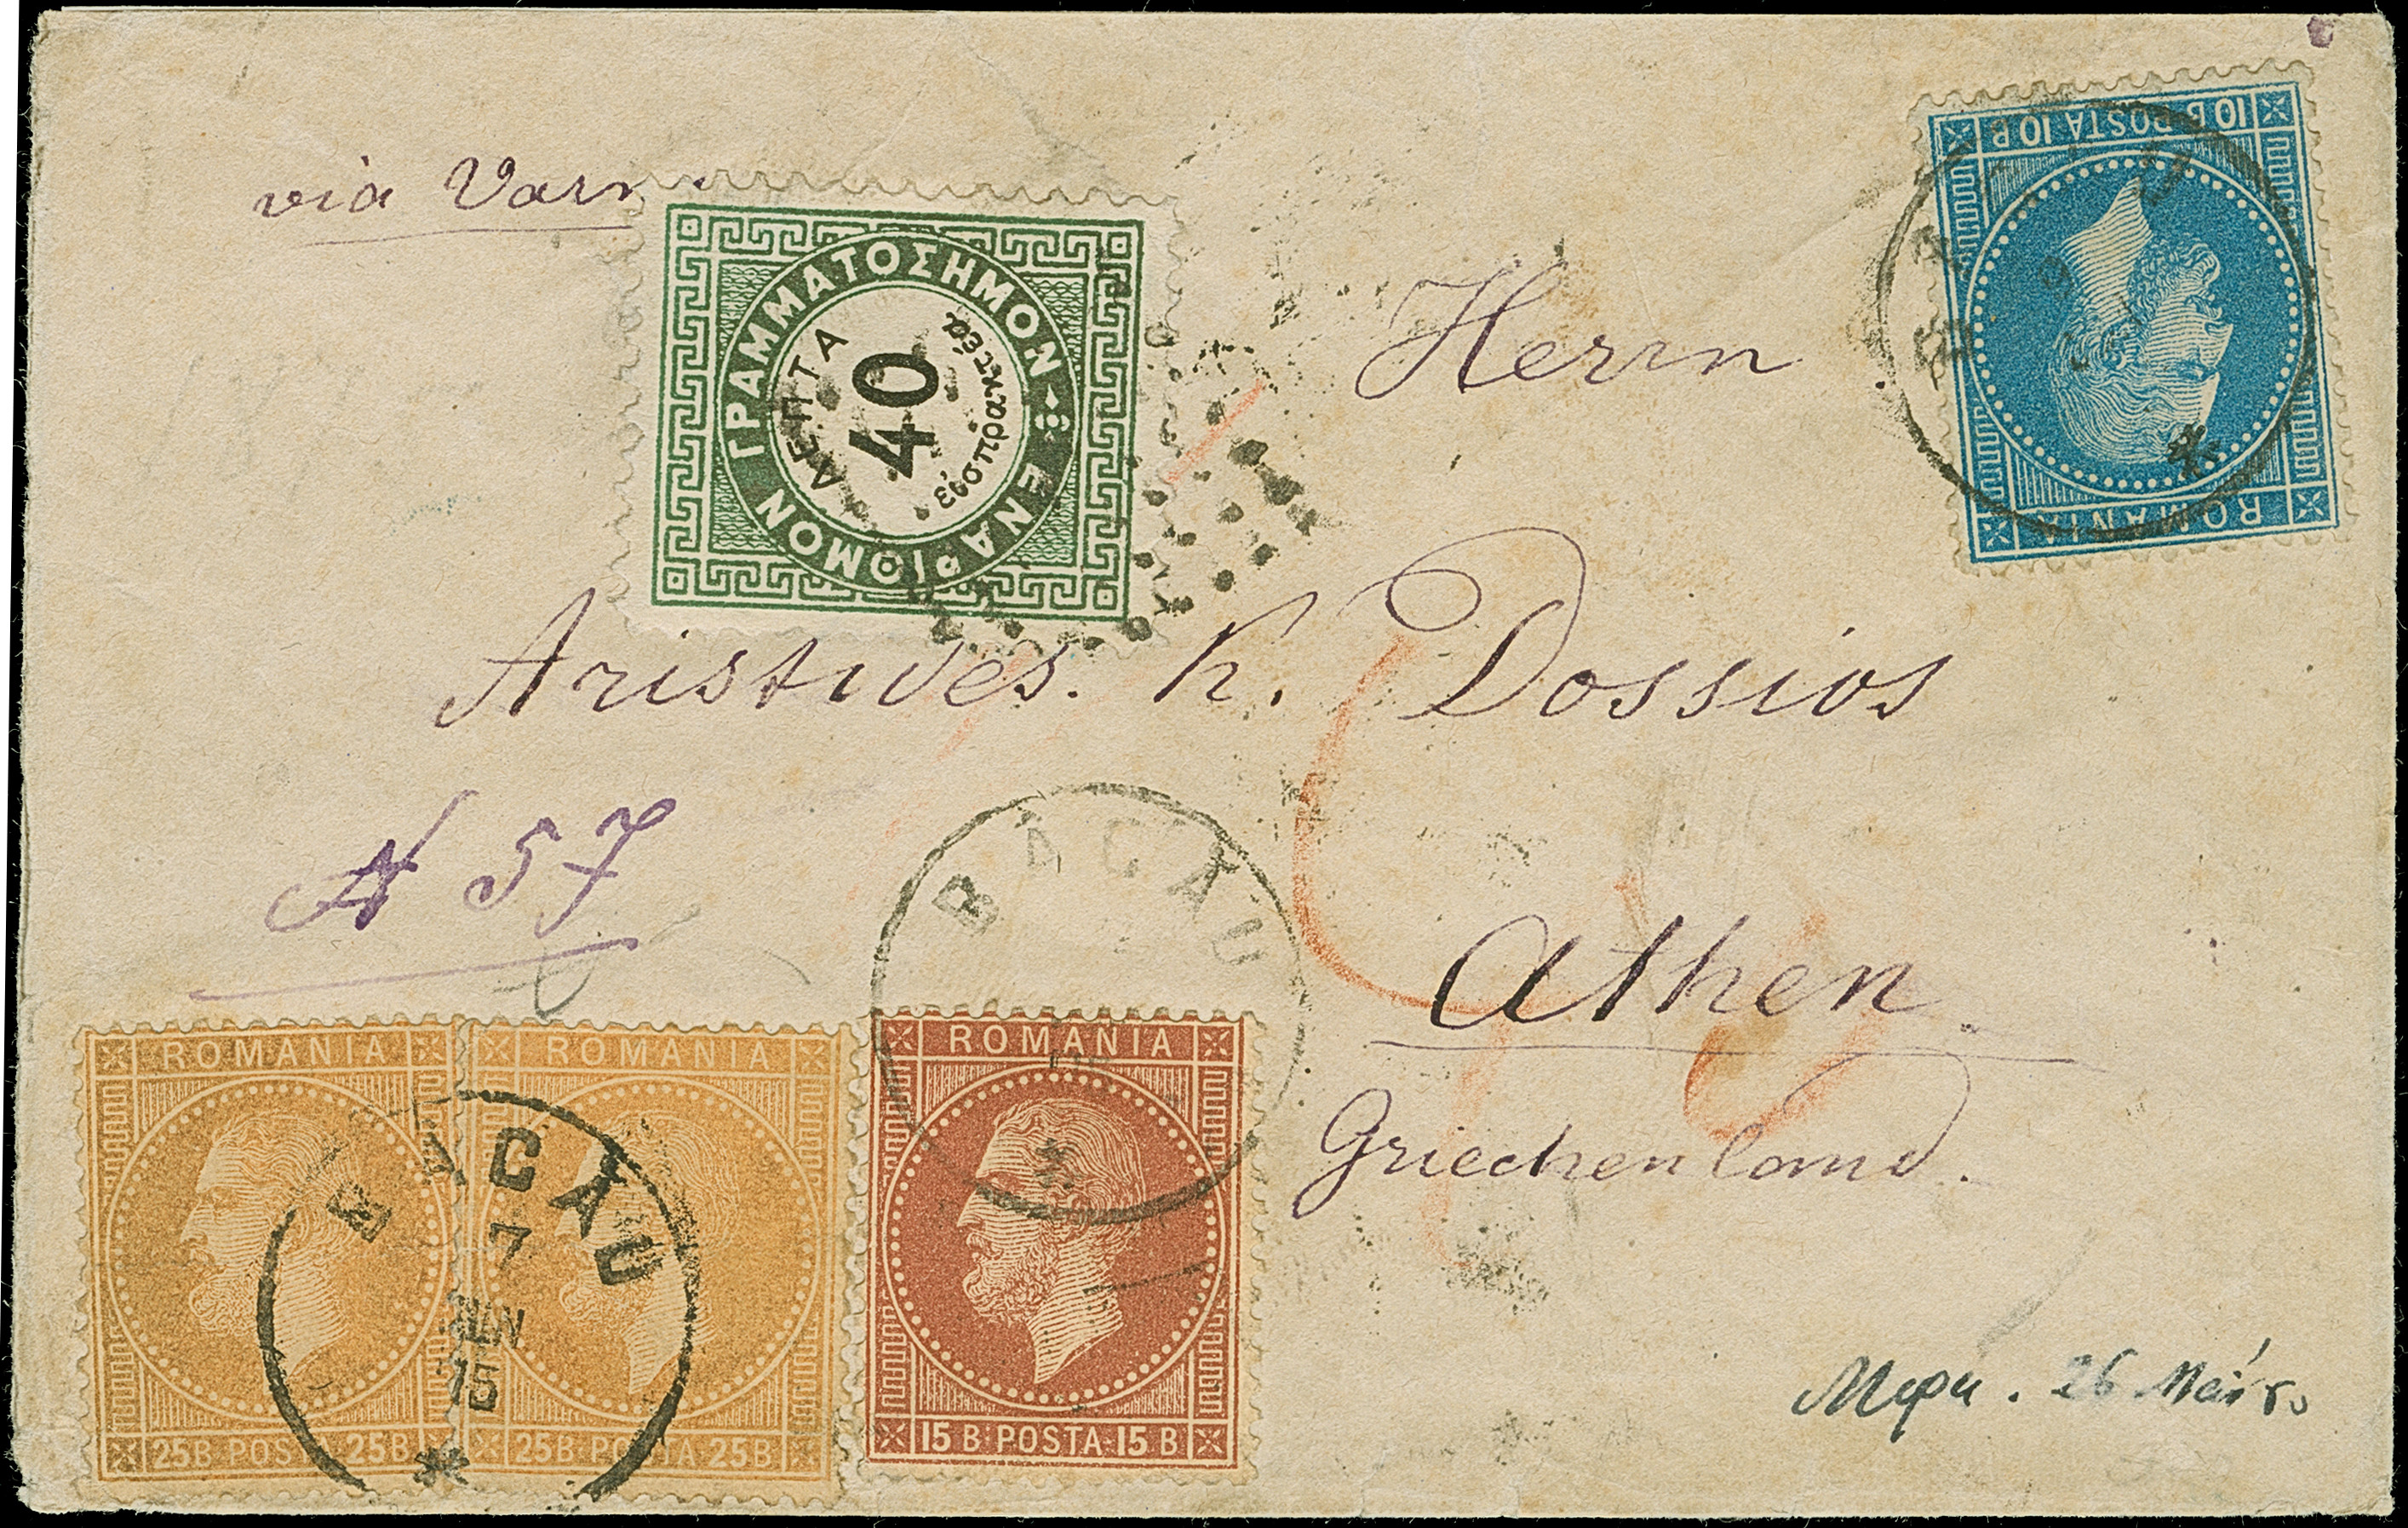 via Varn
ΓΡΑΜΜΑΤΟΣΗΜΟΝ ΕΝΑΡΙΘΜΟΝ
ΛΕΠΤΑ
40
εἰσπρακτέα
10 B POSTA 10 B
ROMANIA
Herrn
Aristides. K. Dossios
N 57
BACĂU
Athen
Griechenland.
ROMANIA
25B·POSTA·25B
ROMANIA
25B·POSTA·25B
BACĂU
7
IUN
ROMANIA
15 B·POSTA·15 B
26 Μαΐου